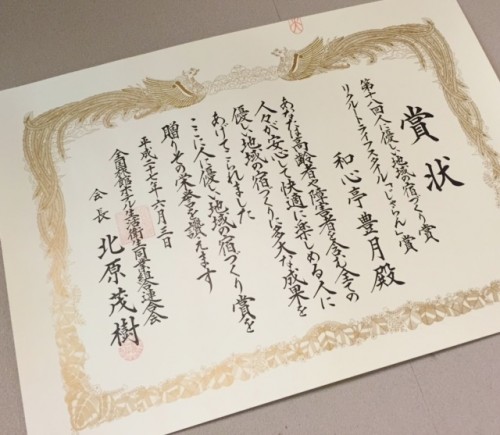 賞状
第十八回人に優しい地域の宿づくり賞
リクルートライフスタイル「じゃらん」賞
和心亭豊月殿
あなたは高齢者や障害者を含む全ての
人々が安心して快適に楽しめる人に
優しい地域の宿づくりに多大な成果を
あげてこられました
ここに人に優しい地域の宿づくり賞を
贈りその栄誉を讃えます
平成二十七年六月三日
全国旅館ホテル生活衛生同業組合連合会
会長 北原茂樹